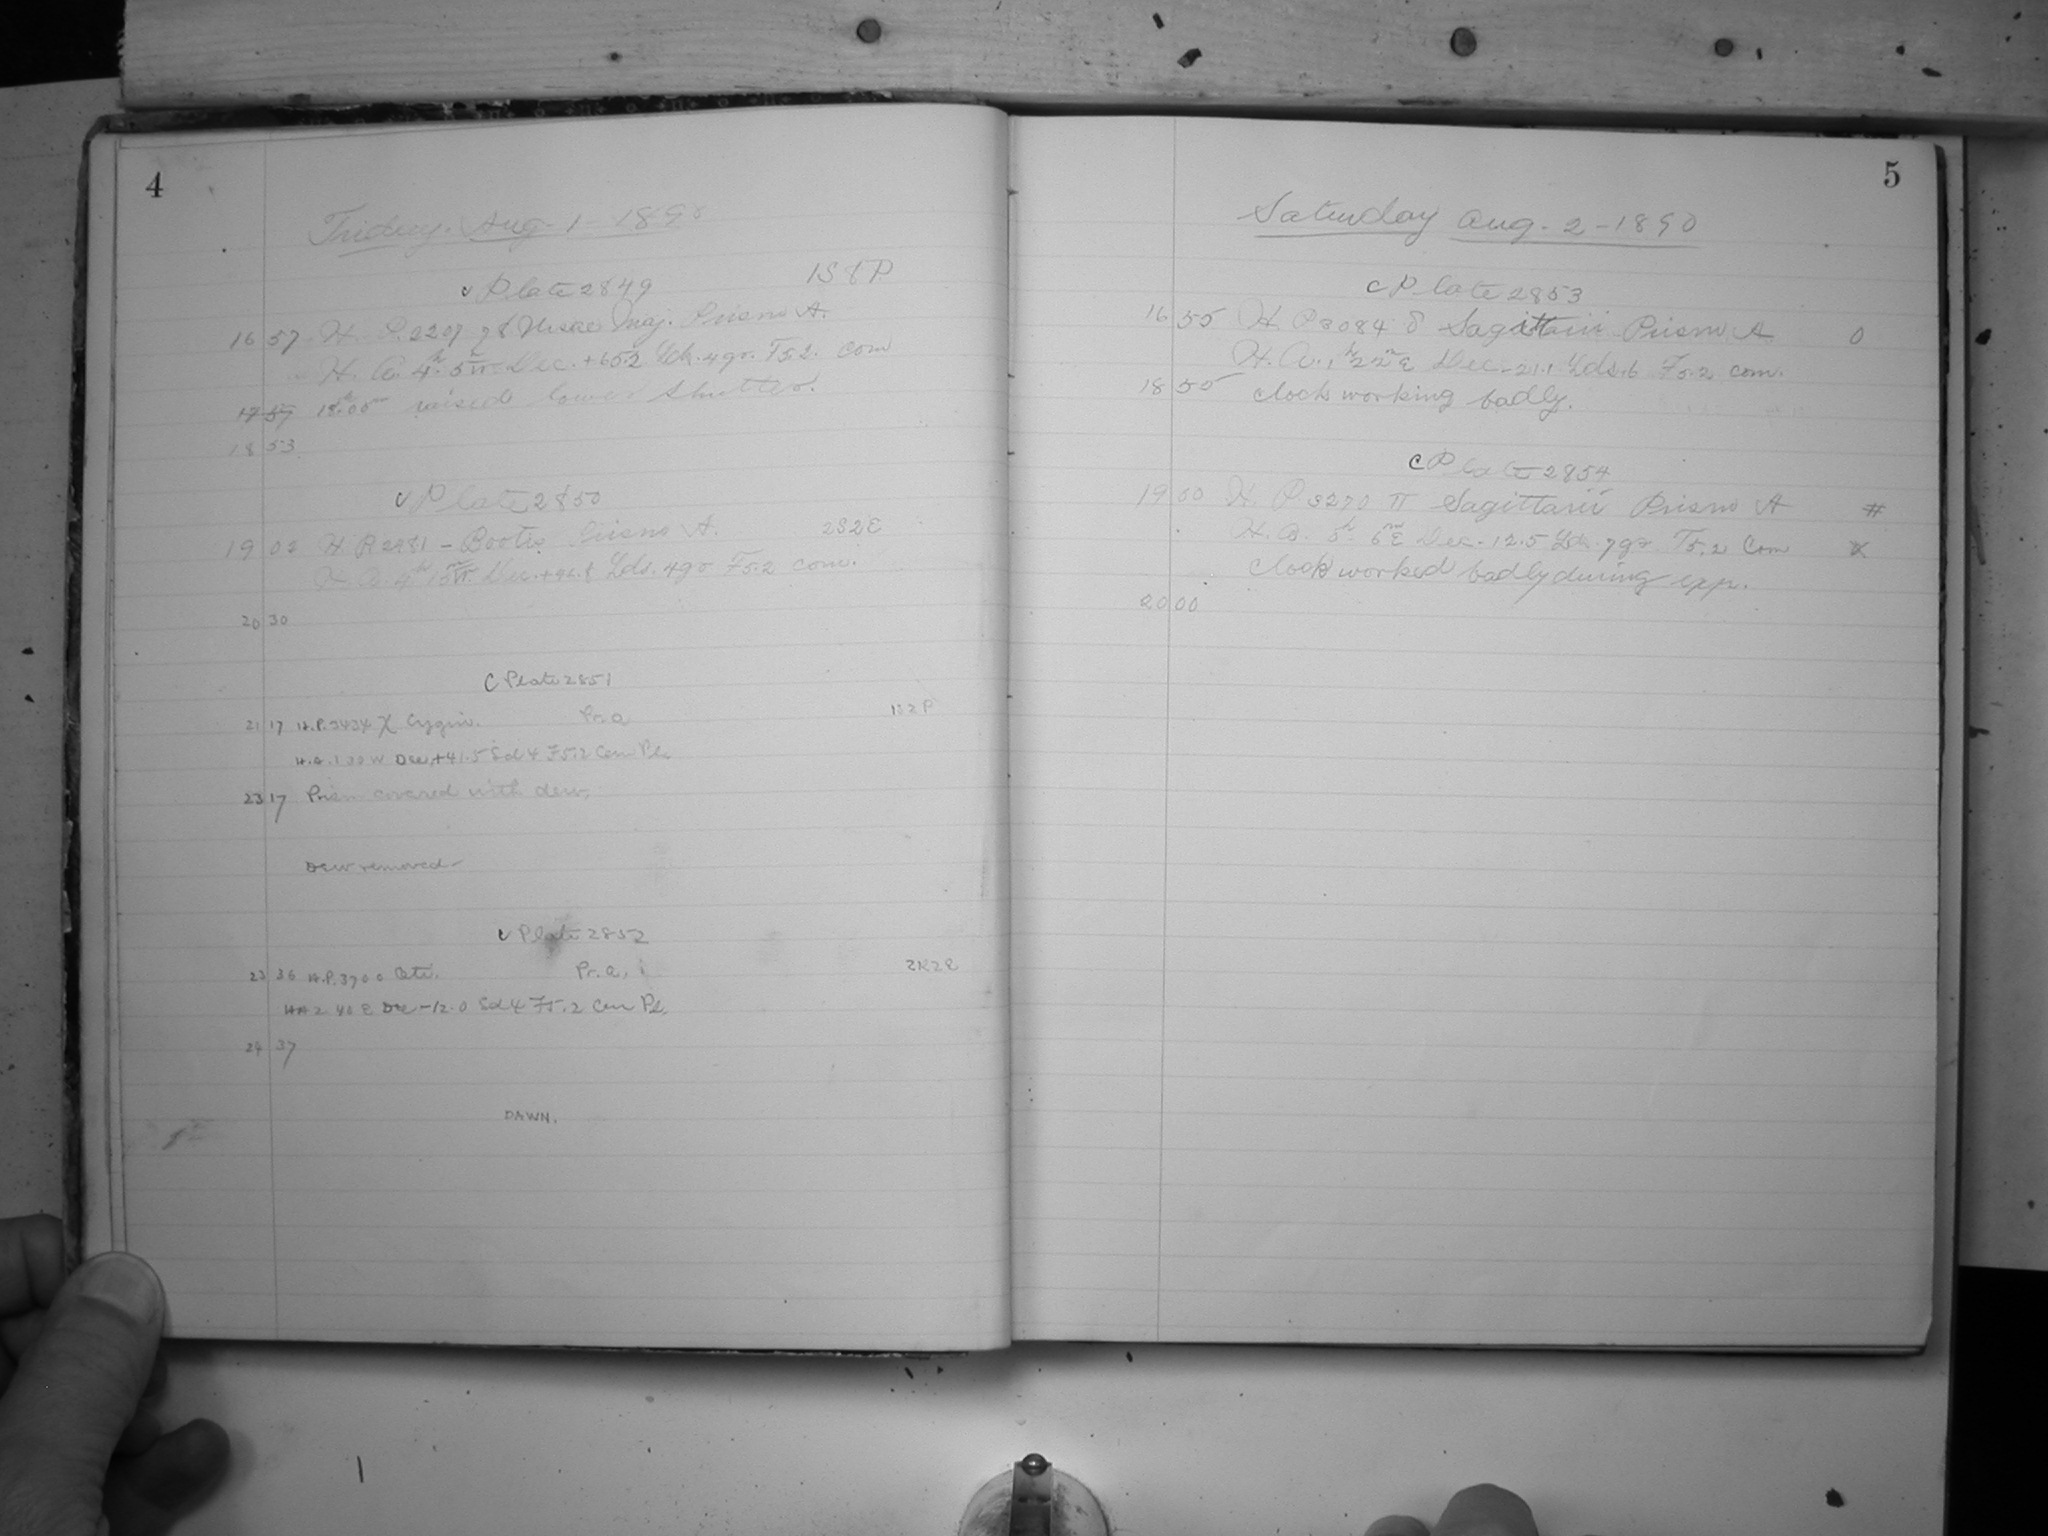 4
Friday. Aug. 1 - 1890
c Plate 2849
16 57 H. P. 2207 Ursae Maj. Prism A.
H. A. 4h 5m Dec. +65.2 4 gr. F5.2. com
17 57 18h.00m raised lower shutter.
18 53
c Plate 2850 2S2E
19 02 H P. 2481 - Bootis Prism A.
H. A. Dec. Lds. 4 gr F5.2 com.
20 30
C Plate 2851
21 17 H.P. 3434 χ Cygni. Pr. a 1S2P
H.A. 1 30 W Dec. +41.5 Sd 4 F5.2 Com Pl.
23 17 Prism covered with dew.
Dew removed -
c Plate 2852
23 36 H.P. 3700 Ceti. Pr. a, 2R2E
HA 2 40 E Dec -12.0 Sd 4 F5.2 Com Pl.
24 37
DAWN.
5
Saturday Aug. 2 - 1890
c Plate 2853
16 55 H. P 3084 δ Sagittarii Prism A 0
H. A. 1h 22m E Dec. -21.1 Lds. 6 F5.2 com.
18 55 clock working badly.
c Plate 2854
19 00 H. P. 3270 π Sagittarii Prism A #
H. A. 5h 6m E Dec. - 12.5 7 gr F5.2 Com X
Clock worked badly during exp.
20 00